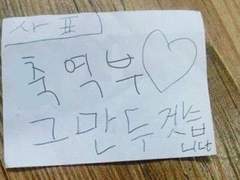 사표
축역부♡
그만두겟습
니다